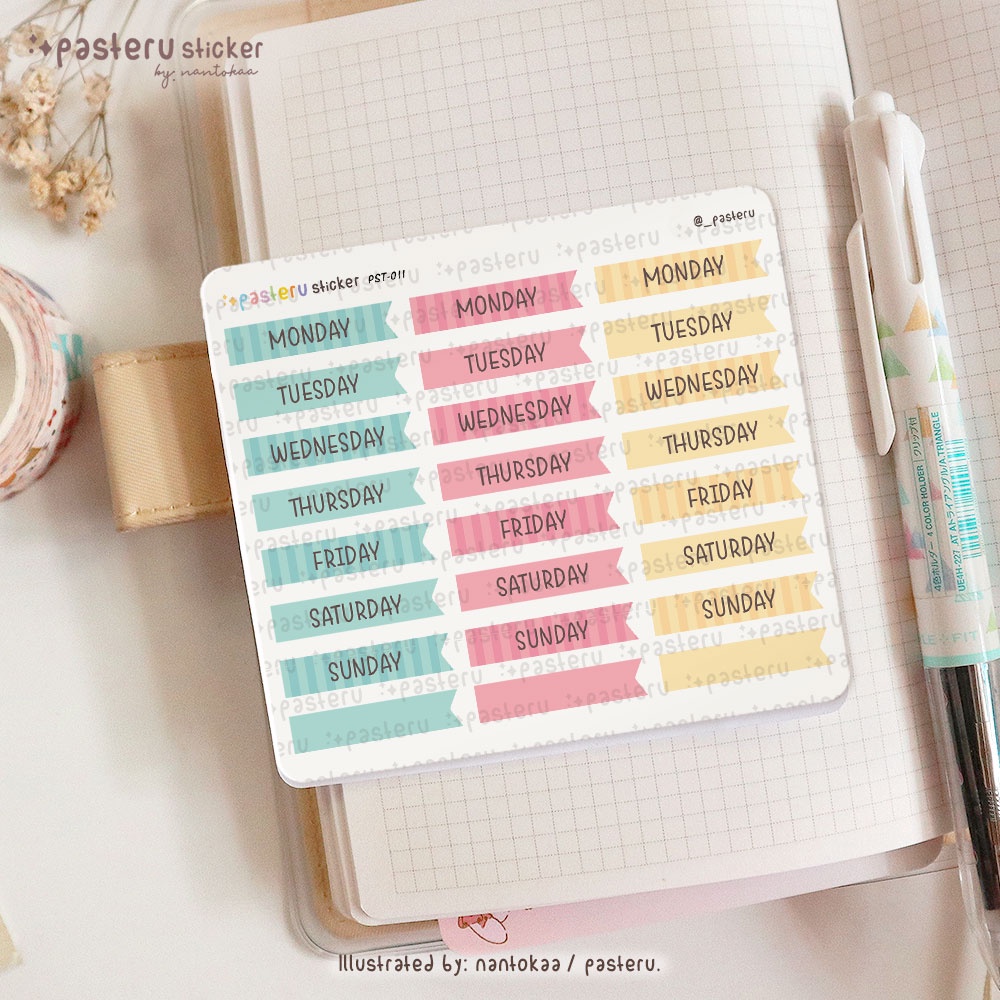 pasteru sticker
by: nantokaa
@_pasteru
pasteru sticker PST-011
MONDAY
TUESDAY
WEDNESDAY
THURSDAY
FRIDAY
SATURDAY
SUNDAY
MONDAY
TUESDAY
WEDNESDAY
THURSDAY
FRIDAY
SATURDAY
SUNDAY
MONDAY
TUESDAY
WEDNESDAY
THURSDAY
FRIDAY
SATURDAY
SUNDAY
4色ホルダー 4 COLOR HOLDER クリップ付
UE4H-227 AT Aトライアングル/A TRIANGLE
Illustrated by: nantokaa / pasteru.